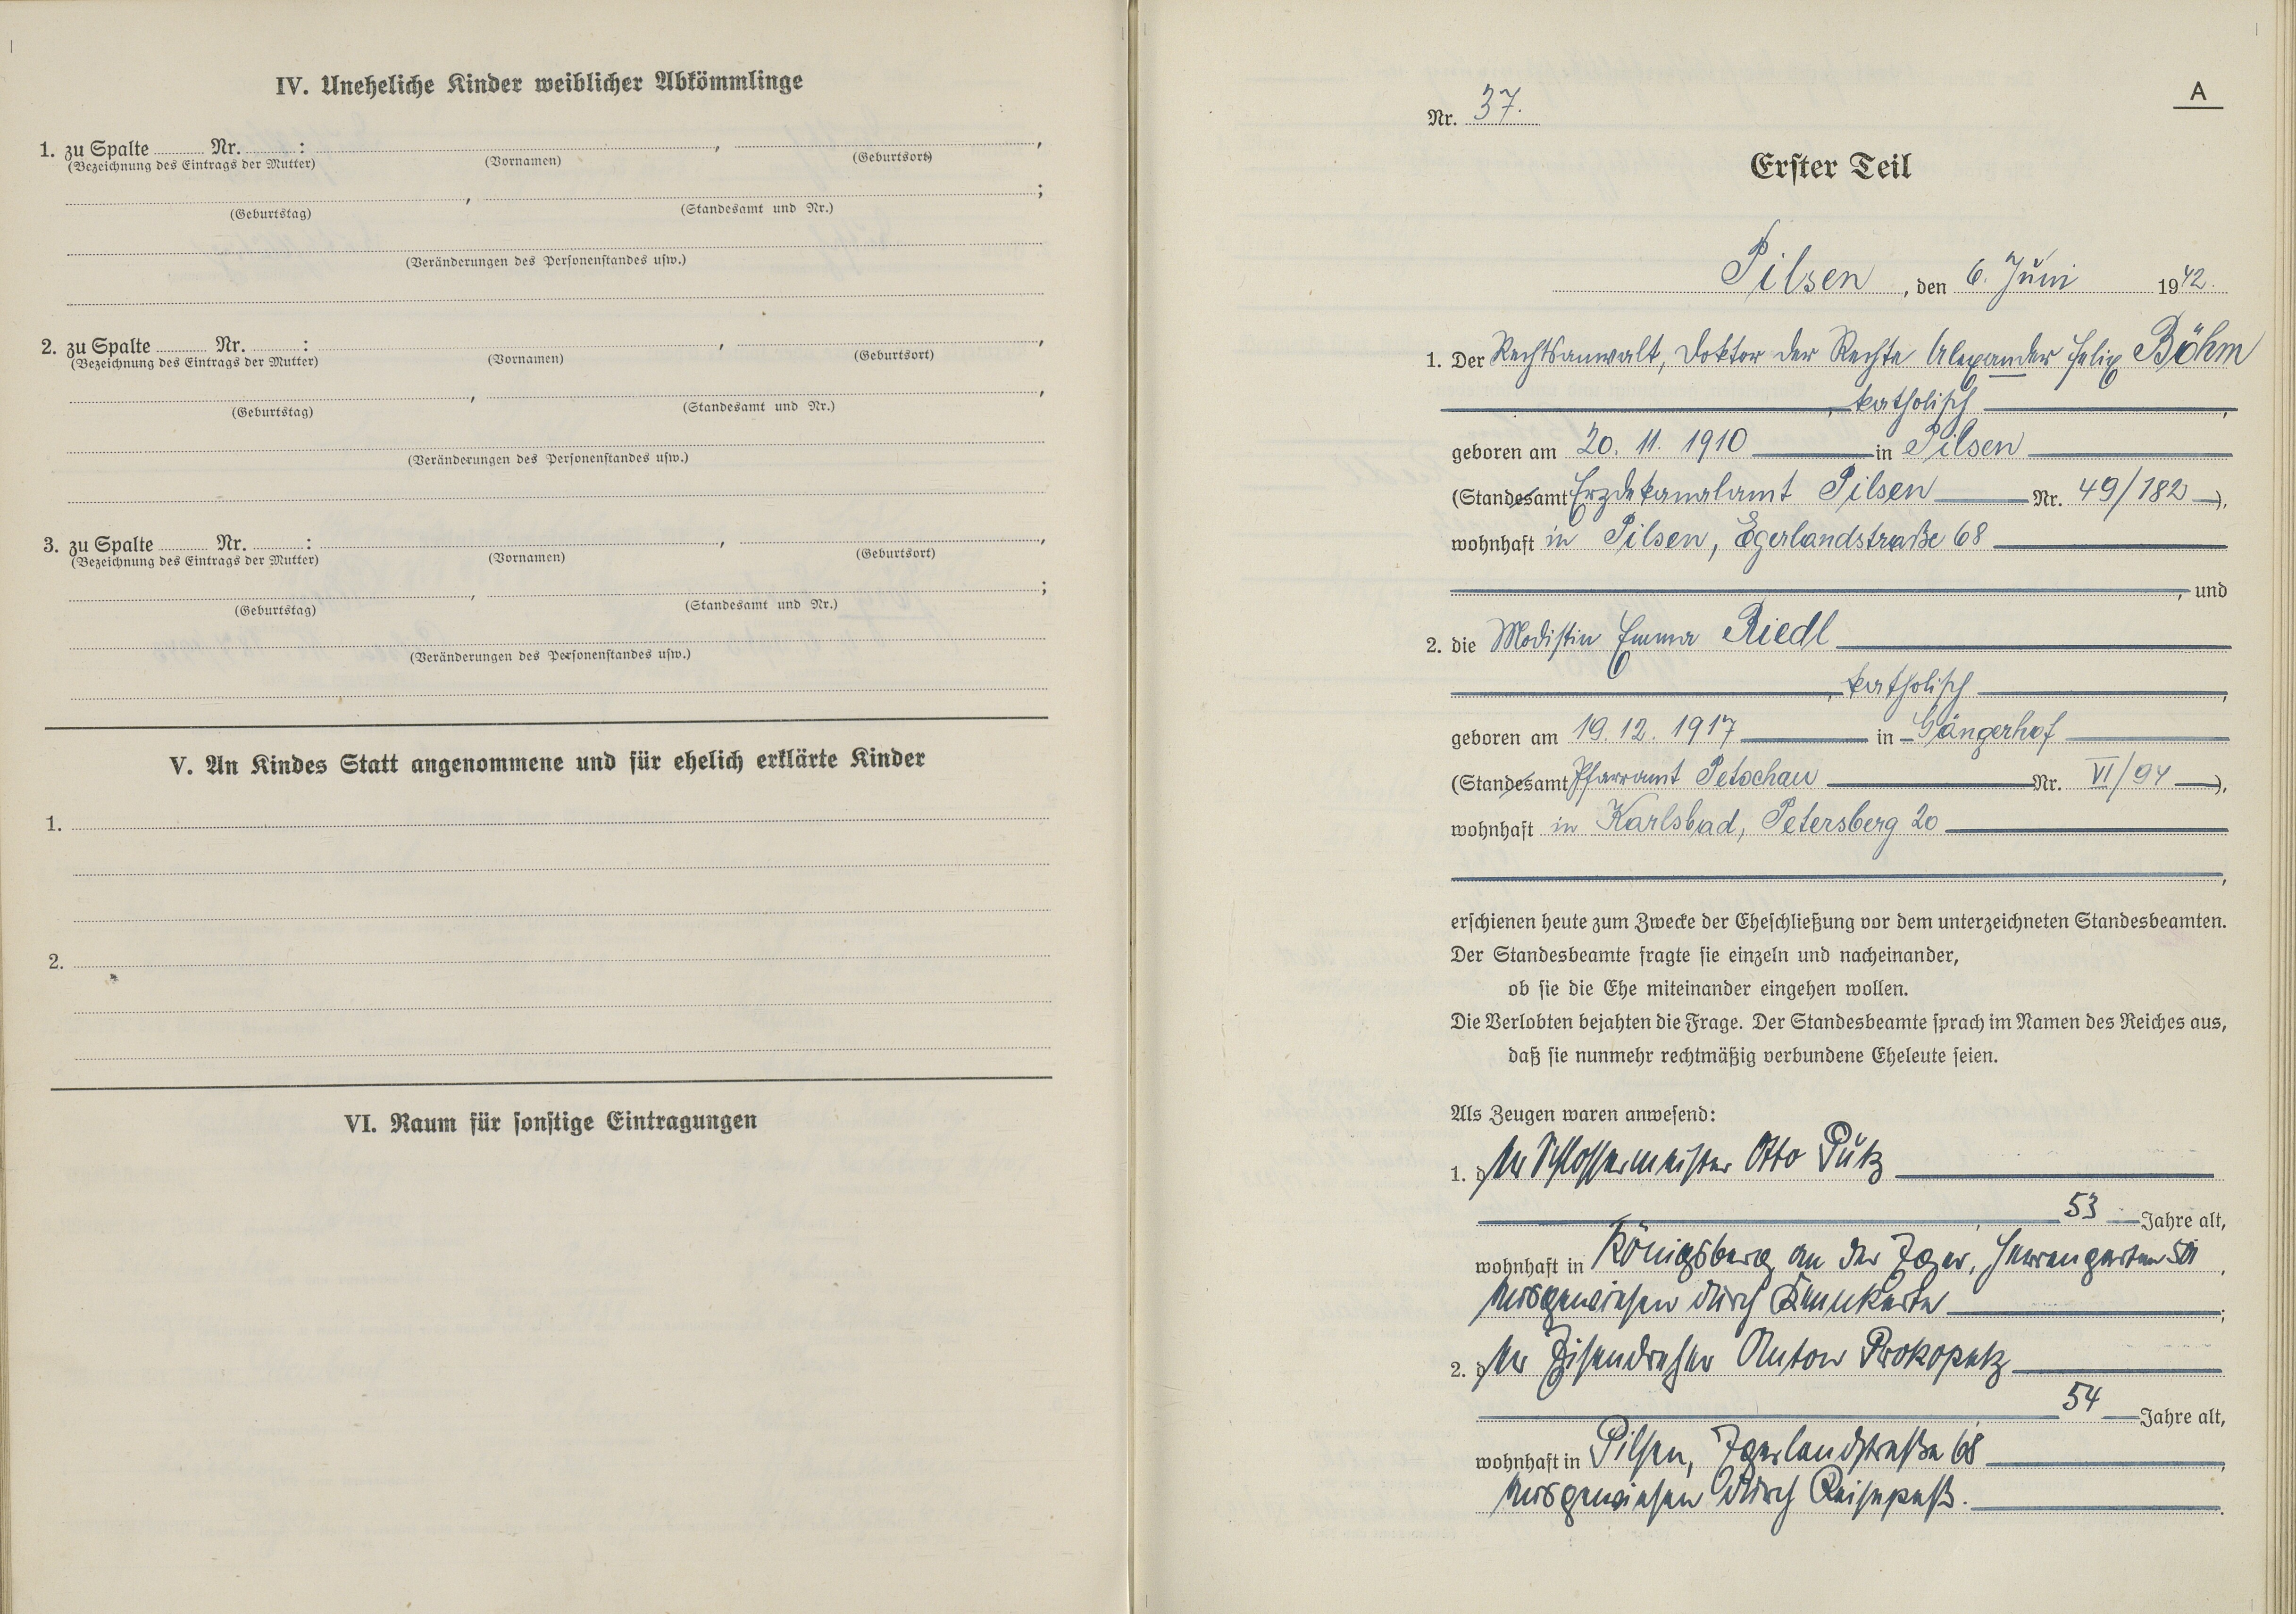 IV. Uneheliche Kinder weiblicher Abkömmlinge
1. zu Spalte ........ Nr. ........ : ........ , ........ ,
(Bezeichnung des Eintrags der Mutter) (Vornamen) (Geburtsort)
........ , ........ ;
(Geburtstag) (Standesamt und Nr.)
(Veränderungen des Personenstandes usw.)
2. zu Spalte ........ Nr. ........ : ........ , ........ ,
(Bezeichnung des Eintrags der Mutter) (Vornamen) (Geburtsort)
........ , ........ ,
(Geburtstag) (Standesamt und Nr.)
(Veränderungen des Personenstandes usw.)
3. zu Spalte ........ Nr. ........ : ........ , ........ ,
(Bezeichnung des Eintrags der Mutter) (Vornamen) (Geburtsort)
........ , ........ ;
(Geburtstag) (Standesamt und Nr.)
(Veränderungen des Personenstandes usw.)
V. An Kindes Statt angenommene und für ehelich erklärte Kinder
1.
2.
VI. Raum für sonstige Eintragungen
A
Nr. 37.
Erster Teil
Pilsen, den 6. Juni 1942.
1. Der Rechtsanwalt, Doktor der Rechte Alexander Felix Böhm
, katholisch ,
geboren am 20. 11. 1910 in Pilsen
(Standesamt Erzdekanalamt Pilsen Nr. 49/182 ),
wohnhaft in Pilsen, Egerlandstraße 68
, und
2. die Modistin Emma Riedl
, katholisch ,
geboren am 19. 12. 1917 in Gängerhof
(Standesamt Pfarramt Petschau Nr. VI/94 ),
wohnhaft in Karlsbad, Petersberg 20
,
erschienen heute zum Zwecke der Eheschließung vor dem unterzeichneten Standesbeamten.
Der Standesbeamte fragte sie einzeln und nacheinander,
ob sie die Ehe miteinander eingehen wollen.
Die Verlobten bejahten die Frage. Der Standesbeamte sprach im Namen des Reiches aus,
daß sie nunmehr rechtmäßig verbundene Eheleute seien.
Als Zeugen waren anwesend:
1. der Schlossermeister Otto Pütz
, 53 Jahre alt,
wohnhaft in Königsberg an der Eger, Herrengarten ,
ausgewiesen durch Kennkarte ;
2. der Eisendreher Anton Prokopetz
54 Jahre alt,
wohnhaft in Pilsen, Egerlandstraße 68 ,
ausgewiesen durch Reisepaß.